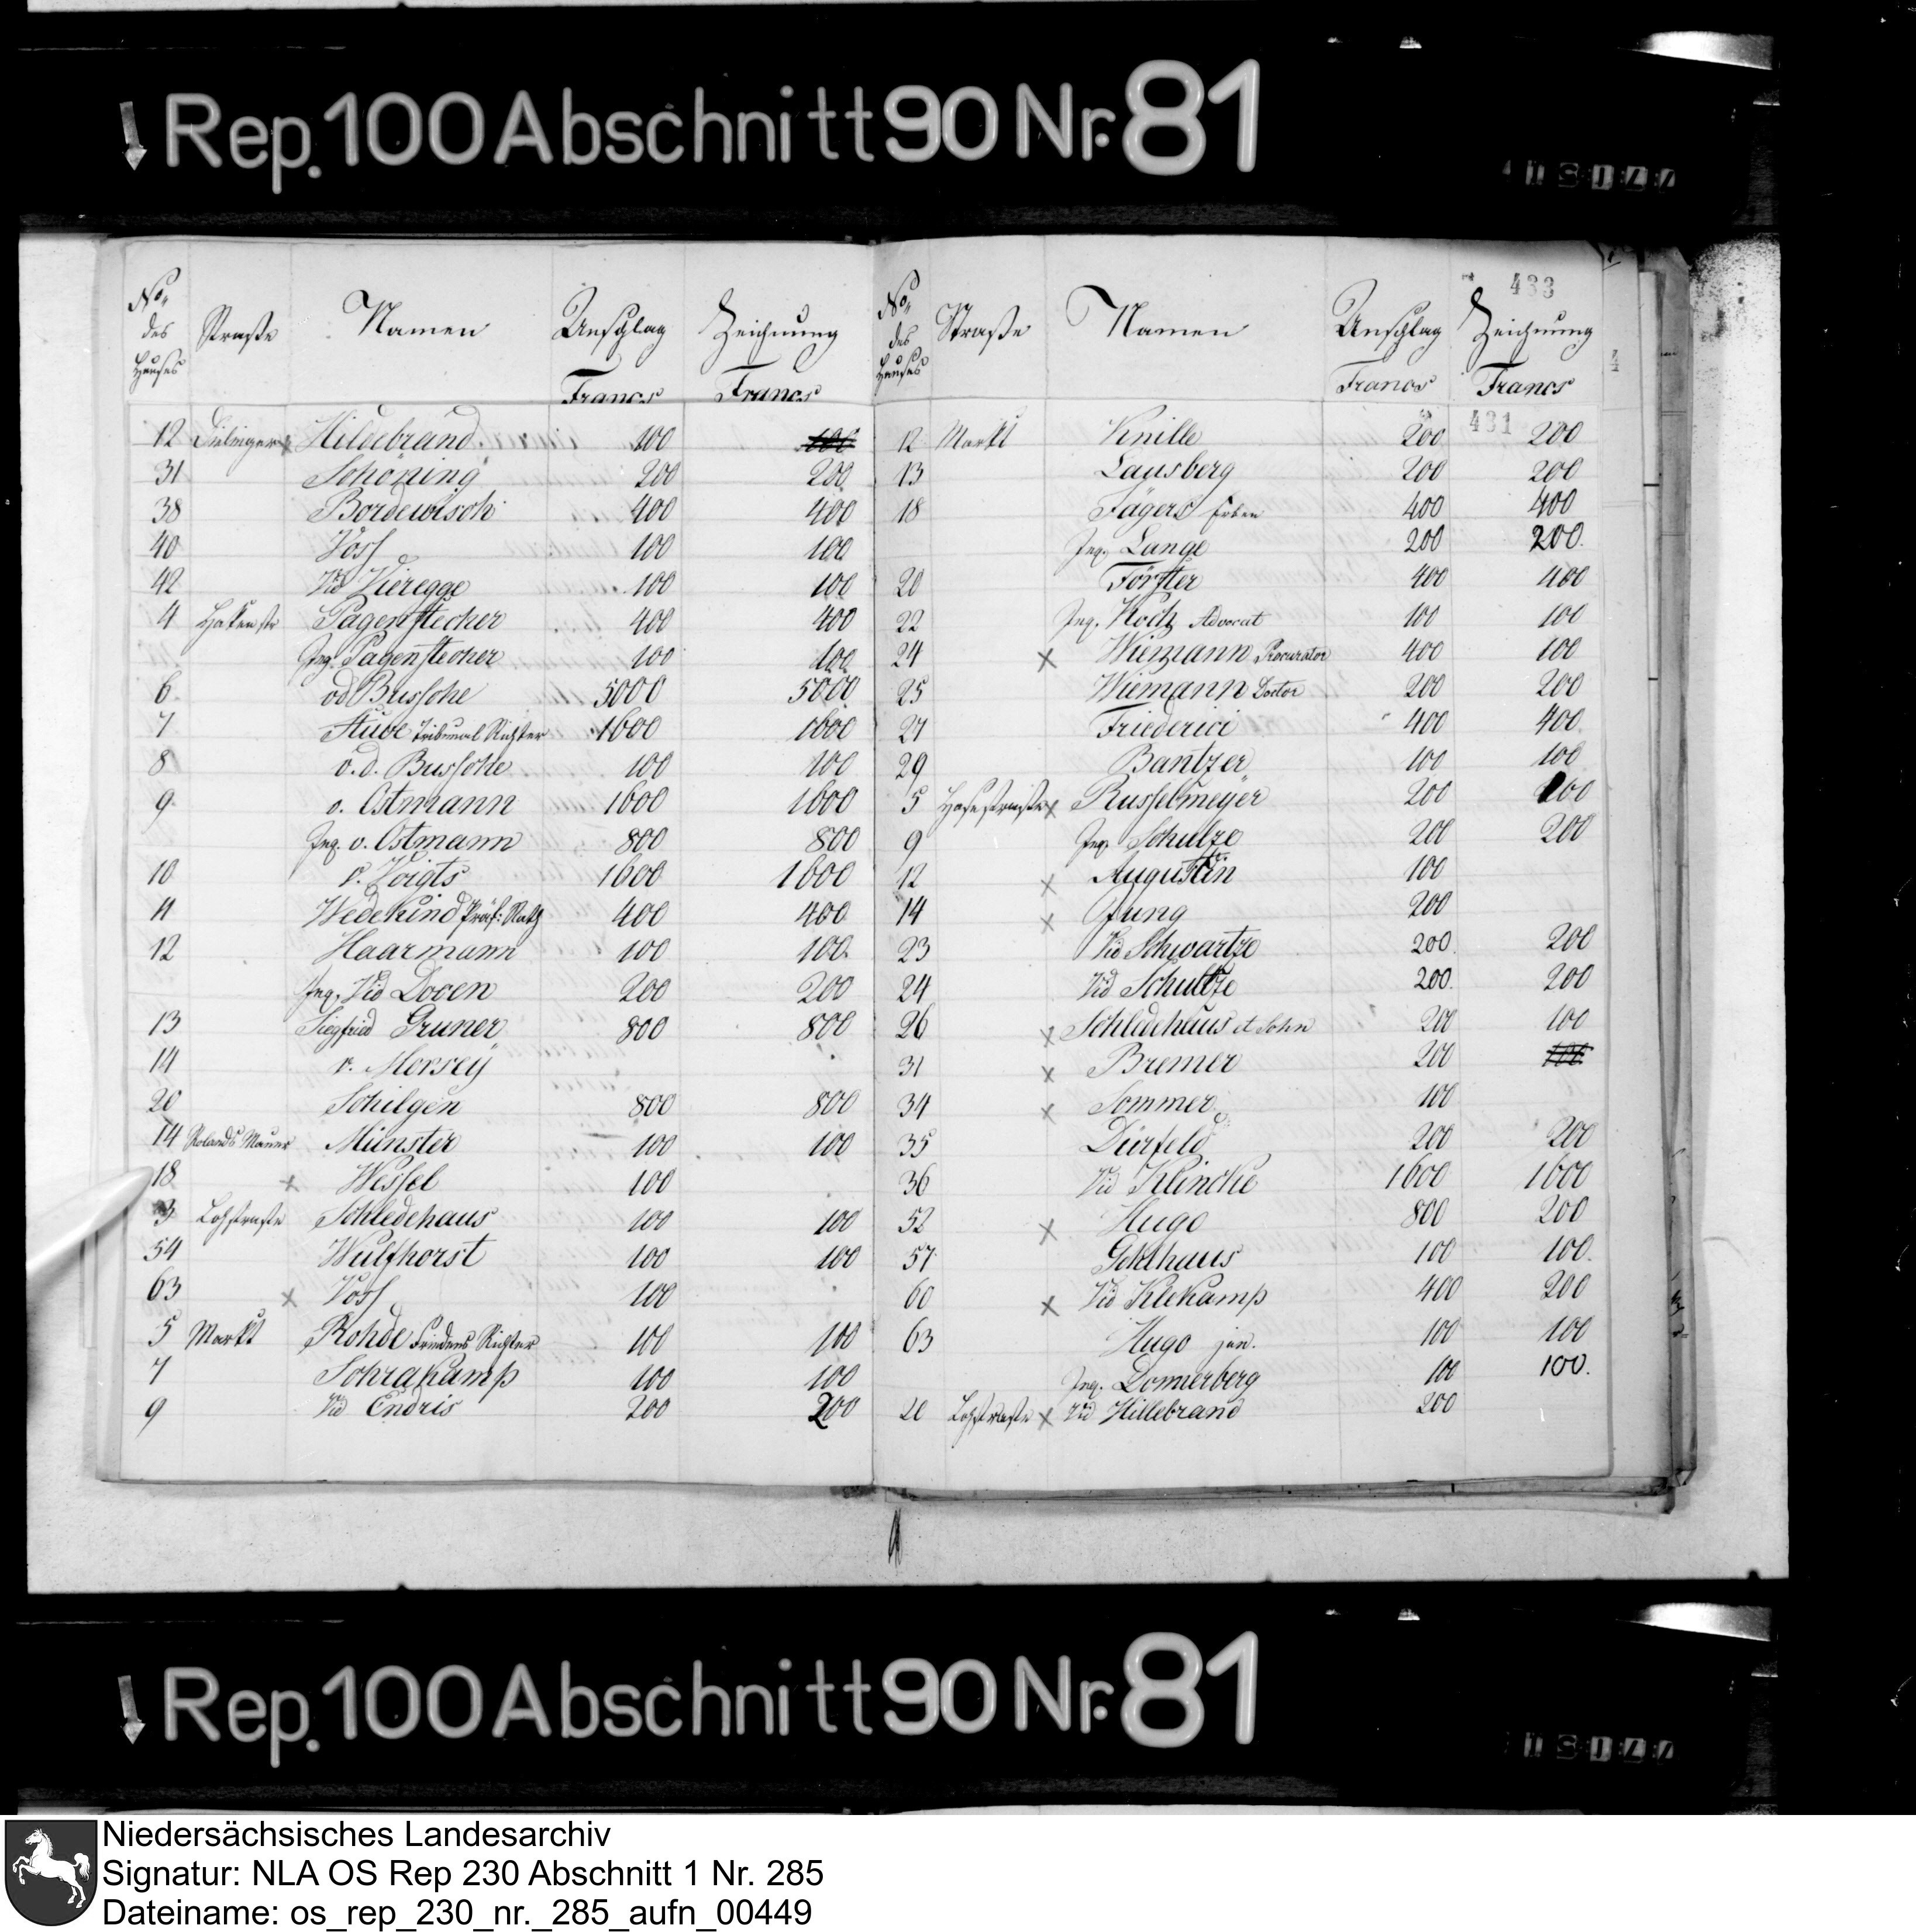 Rep. 100 Abschnitt 90 Nr. 81
433
No. des Hauses Straße Namen Anschlag Francs Zeichnung Francs
12 Dielinger x Hildebrand 100 100
31 Schöning 200 200
38 Bordewisch 400 400
40 Voss 100 100
42 Vid Vieregge 100 100
4 Hakenstr Pagenstecher 400 400
Inq. Pagenstecher 100 100
6 v d Bussche 5000 5000
7 Stuve Tribunal Richter 1600 1600
8 v. d. Bussche 100 100
9 v. Ostmann 1600 1600
Inq. v. Ostmann 800 800
10 v. Voigts 1600 1600
11 Wedekind Präf: Rath 400 400
12 Haarmann 100 100.
Inq. Vid Doven 200 200
13 Siegfried Gruner 800 800
14 v. Morseÿ
20 Schilgen 800 800
14 Rolands Mauer Münster 100 100
18 x Wessel 100
3 Lohstraße Schledehaus 100 100
54 Wulfhorst 100 100
63 x Voss 100
5 Markt Rohde Friedens Richter 100 100
7 Schrakamp 100 100
9 Vid Endris 200 200
No. des Hauses Straße Namen Anschlag Francs Zeichnung Francs
431
12 Markt Knille 200 200
13 Lausberg 200 200
18 Jägers Erben 400 400
Inq. Lange 200 200.
20 Förster 400 400
22 Inq. Koch Advocat 100 100
24 x Wiemann Procurator 400 100
25 Wiemann Doctor 200 200
27 Friederici 400 400
29 Bantzer 100 100
5 Hasestraße x Russelmeÿer 200 200
9 Inq. Schulze 200 200
12 x Augustin 100
14 x Jung 200
23 Vid Schwartze 200 200
24 Vid Schultze 200. 200
26 x Schledehaus et Sohn 200 100
31 x Bremer 200 100
34 x Sommer 100
35 Dürfeld 200 200
36 Vid Klincke 1600 1600
52 x Hugo 800 200
57 Gosthaus 100 100.
60 x Vid Klekamp 400 200
63 Hugo jun. 100 100
Inq. Donnerberg 100 100.
20 Lohstraße x Vid Hillebrand 200
Rep. 100 Abschnitt 90 Nr. 81
Niedersächsisches Landesarchiv
Signatur: NLA OS Rep 230 Abschnitt 1 Nr. 285
Dateiname: os_rep_230_nr._285_aufn_00449